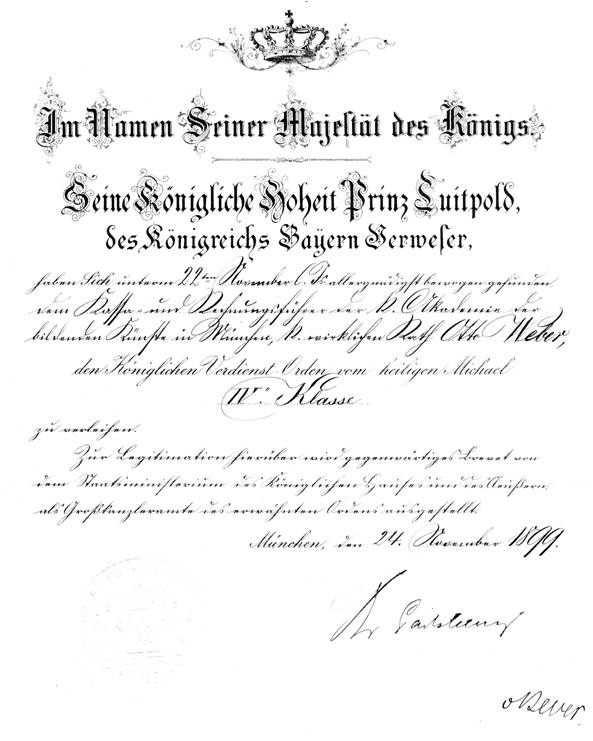 Im Namen Seiner Majestät des Königs.
Seine Königliche Hoheit Prinz Luitpold,
des Königreichs Bayern Verweser,
haben Sich unterm 22ten November l. Js. allergnädigst bewogen gefunden
dem Kassa- und Rechnungsführer der K. Akademie der
bildenden Künste in München, K. wirklichen Rath Otto Weber,
den Königlichen Verdienst Orden vom heiligen Michael
IVr Klasse
zu verleihen.
Zur Legitimation hierüber wird gegenwärtiges Brevet von
dem Staatsministerium des Königlichen Hauses und des Äußern,
als Großkanzleramte des erwähnten Ordens ausgestellt.
München, den 24. November 1899.